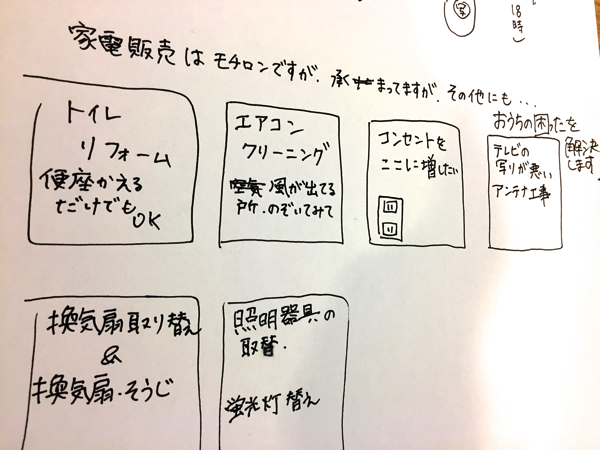 18時)
家電販売はモチロンですが、承まってますが、その他にも・・・
おうちの困ったを
解決
します
トイレ
リフォーム
便座かえる
だけでも
OK
エアコン
クリーニング
風が出てる
所、のぞいてみて
コンセントを
ここに増したい
テレビの
写りが悪い
アンテナ工事
換気扇取り替え
&
換気扇・そうじ
照明器具の
取替.
蛍光灯替え